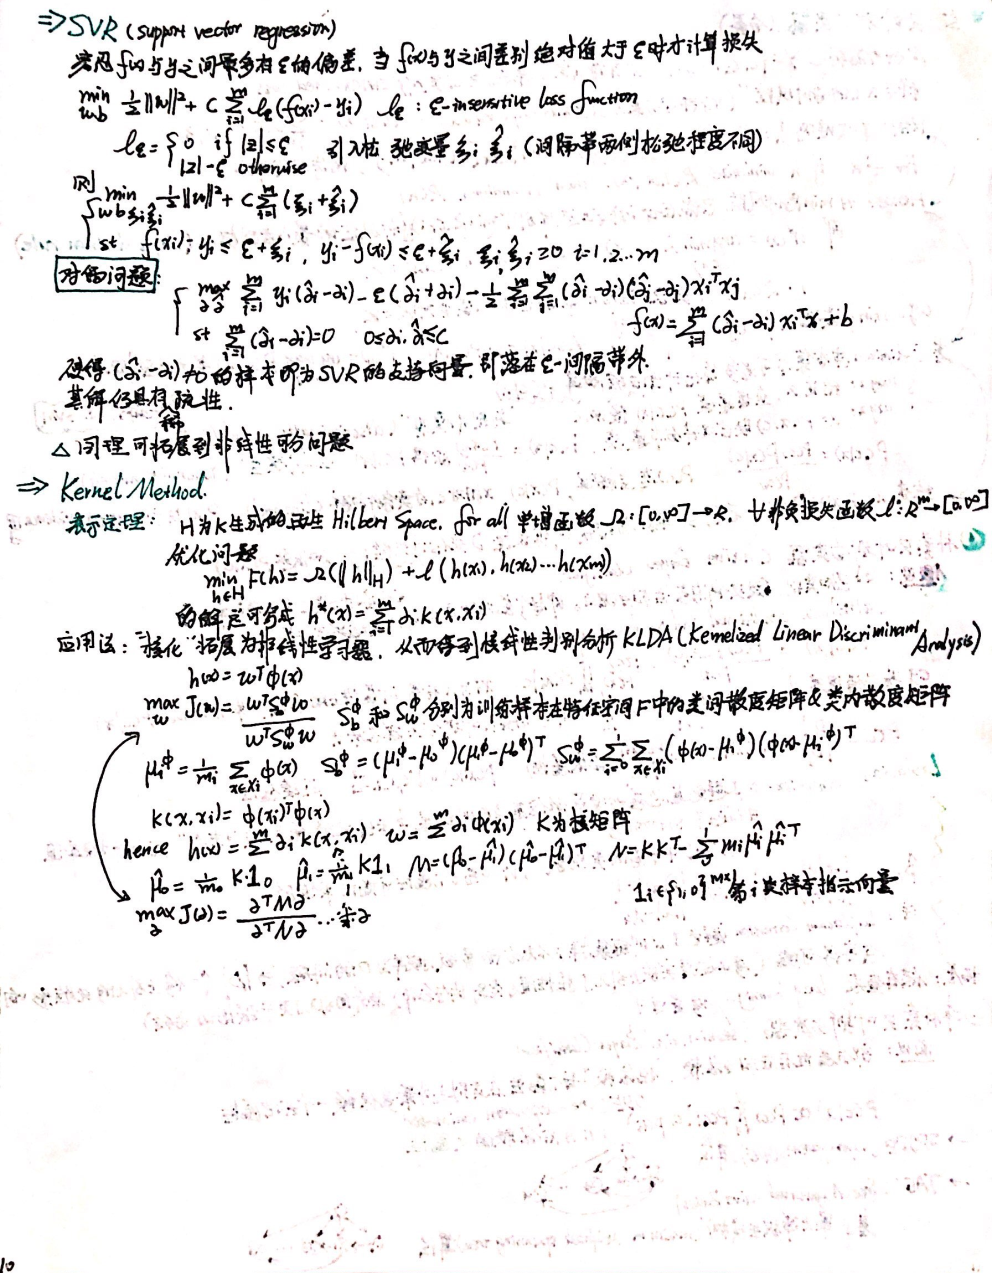 ⇒ SVR (support vector regression)
容忍f(x)与y之间最多有ε的偏差, 当f(x)与y之间差别绝对值大于ε时才计算损失
min_{w,b} ½||w||² + C Σ_{i=1}^m l_ε(f(xi)-yi)  l_ε : ε-insensitive loss function
l_ε = { 0 if |z|≤ε  引入松弛变量 ξi ξ̂i (间隔带两侧松弛程度不同)
|z|-ε otherwise
则 { min_{w b ξi ξ̂i} ½||w||² + C Σ_{i=1}^m (ξi+ξ̂i)
st f(xi)-yi ≤ ε+ξi, yi-f(xi) ≤ ε+ξ̂i  ξi, ξ̂i ≥0 i=1,2...m
对偶问题:
{ max_{α α̂} Σ_{i=1}^m yi(α̂i-αi) - ε(α̂i+αi) - ½ Σ_{i=1}^m Σ_{j=1}^m (α̂i-αi)(α̂j-αj) xi^T xj
st Σ_{i=1}^m (α̂i-αi)=0  0≤αi, α̂i≤C  f(x)=Σ_{i=1}^m (α̂i-αi) xi^T x + b
使得(α̂i-αi)≠0的样本即为SVR的支持向量, 即落在ε-间隔带外.
其解仍具有稀疏性.
△ 同理可拓展到非线性可分问题
⇒ Kernel Method.
表示定理: H为K生成的再生 Hilbert Space, for all 单增函数 Ω:[0,∞]→R, ∀非负损失函数 l:R^m→[0,∞]
优化问题
min_{h∈H} F(h)= Ω(||h||_H) + l(h(x1), h(x2)...h(xm))
的解总可写成 h*(x)=Σ_{i=1}^m αi k(x,xi)
应用法: "核化" 拓展为非线性学习器, 从而得到核线性判别分析 KLDA (Kernelized Linear Discriminant Analysis)
h(x)= w^T φ(x)
max_w J(w)= w^T S_b^φ w / w^T S_w^φ w  S_b^φ 和 S_w^φ 分别为训练样本在特征空间F中的类间散度矩阵&类内散度矩阵
μi^φ = 1/mi Σ_{x∈Xi} φ(x)  S_b^φ=(μ1^φ-μ0^φ)(μ1^φ-μ0^φ)^T  S_w^φ = Σ_{i=0}^1 Σ_{x∈Xi} (φ(x)-μi^φ)(φ(x)-μi^φ)^T
K(x,xi)= φ(xi)^T φ(x)
hence h(x)=Σ^m αi k(x,xi)  w=Σ^m αi φ(xi)  K为核矩阵
μ̂0 = 1/m0 K·1_0  μ̂1 = 1/m1 K1_1  M=(μ̂0-μ̂1)(μ̂0-μ̂1)^T  N=KK^T - Σ_0^1 mi μ̂i μ̂i^T
max_α J(α)= α^T M α / α^T N α ...求α  1i∈{1,0}^{m×1} 第i类样本指示向量
10